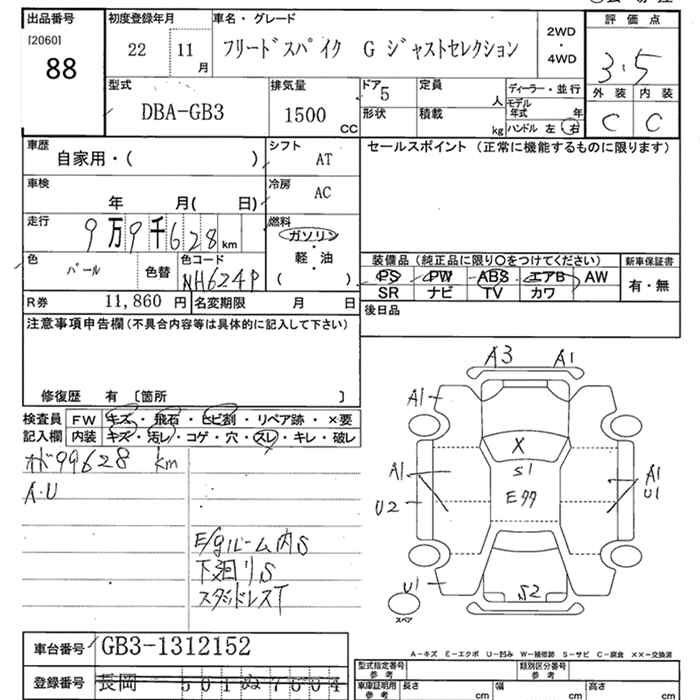 出品番号 初度登録年月 車名・グレード 評価点
[2060] 22 11月 フリードスパイク G ジャストセレクション 2WD・4WD 3.5
88
外装 内装
C C
型式 排気量 ドア 定員 ディーラー・並行
DBA-GB3 1500 CC 5 人 モデル年式 年
形状 積載 kg ハンドル 左 右
車歴 シフト セールスポイント (正常に機能するものに限ります)
自家用・( ) AT
車検 冷房
年 月( 日) AC
走行 燃料
9万9千628km ガソリン・軽・油
( )
色 色コード 装備品 (純正品に限り○をつけてください) 新車保証書
パール 色替 NH624P PS PW ABS エアB AW 有・無
SR ナビ TV カワ
R券 11,860円 名変期限 月 日 後日品
注意事項申告欄(不具合内容等は具体的に記入して下さい)
修復歴 有 [箇所 ]
検査員 FW キズ・飛石・ヒビ割・リペア跡・×要
記入欄 内装 キズ・汚レ・コゲ・穴・スレ・キレ・破レ
オド99628 km
A・U
E/gルーム内S
下廻りS
スタッドレスT
A3 A1
A1
X
A1 S1 A1
U2 E99 U1
U1 S2
スペア
A-キズ E-エクボ U-凹み W-補修跡 S-サビ C-腐食 ××-交換済
車台番号 GB3-1312152
登録番号 長岡 501 ぬ 7604
型式指定番号 参考 類別区分番号 参考
車庫証明用 参考 長さ cm 幅 cm 高さ cm